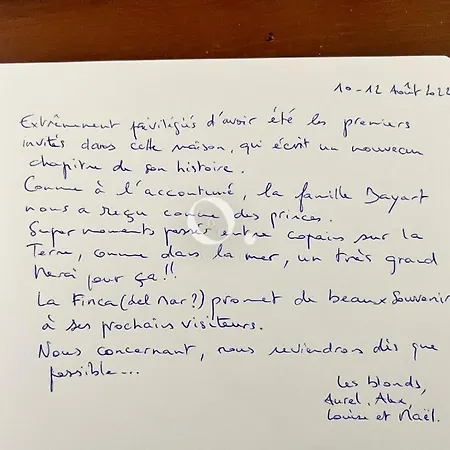 10-12 Août 2022
Extrêmement privilégiés d'avoir été les premiers
invités dans cette maison, qui écrit un nouveau
chapitre de son histoire.
Comme à l'accoutumé, la famille Bayart
nous a reçu comme des princes.
Super moments passés entre copains sur la
Terre, comme dans la mer, un très grand
Merci pour ça !!
La Finca (del Mar?) promet de beaux souvenir
à ses prochains visiteurs.
Nous concernant, nous reviendrons dès que
possible...
Les blonds,
Aurel, Alex,
Louise et Maël.